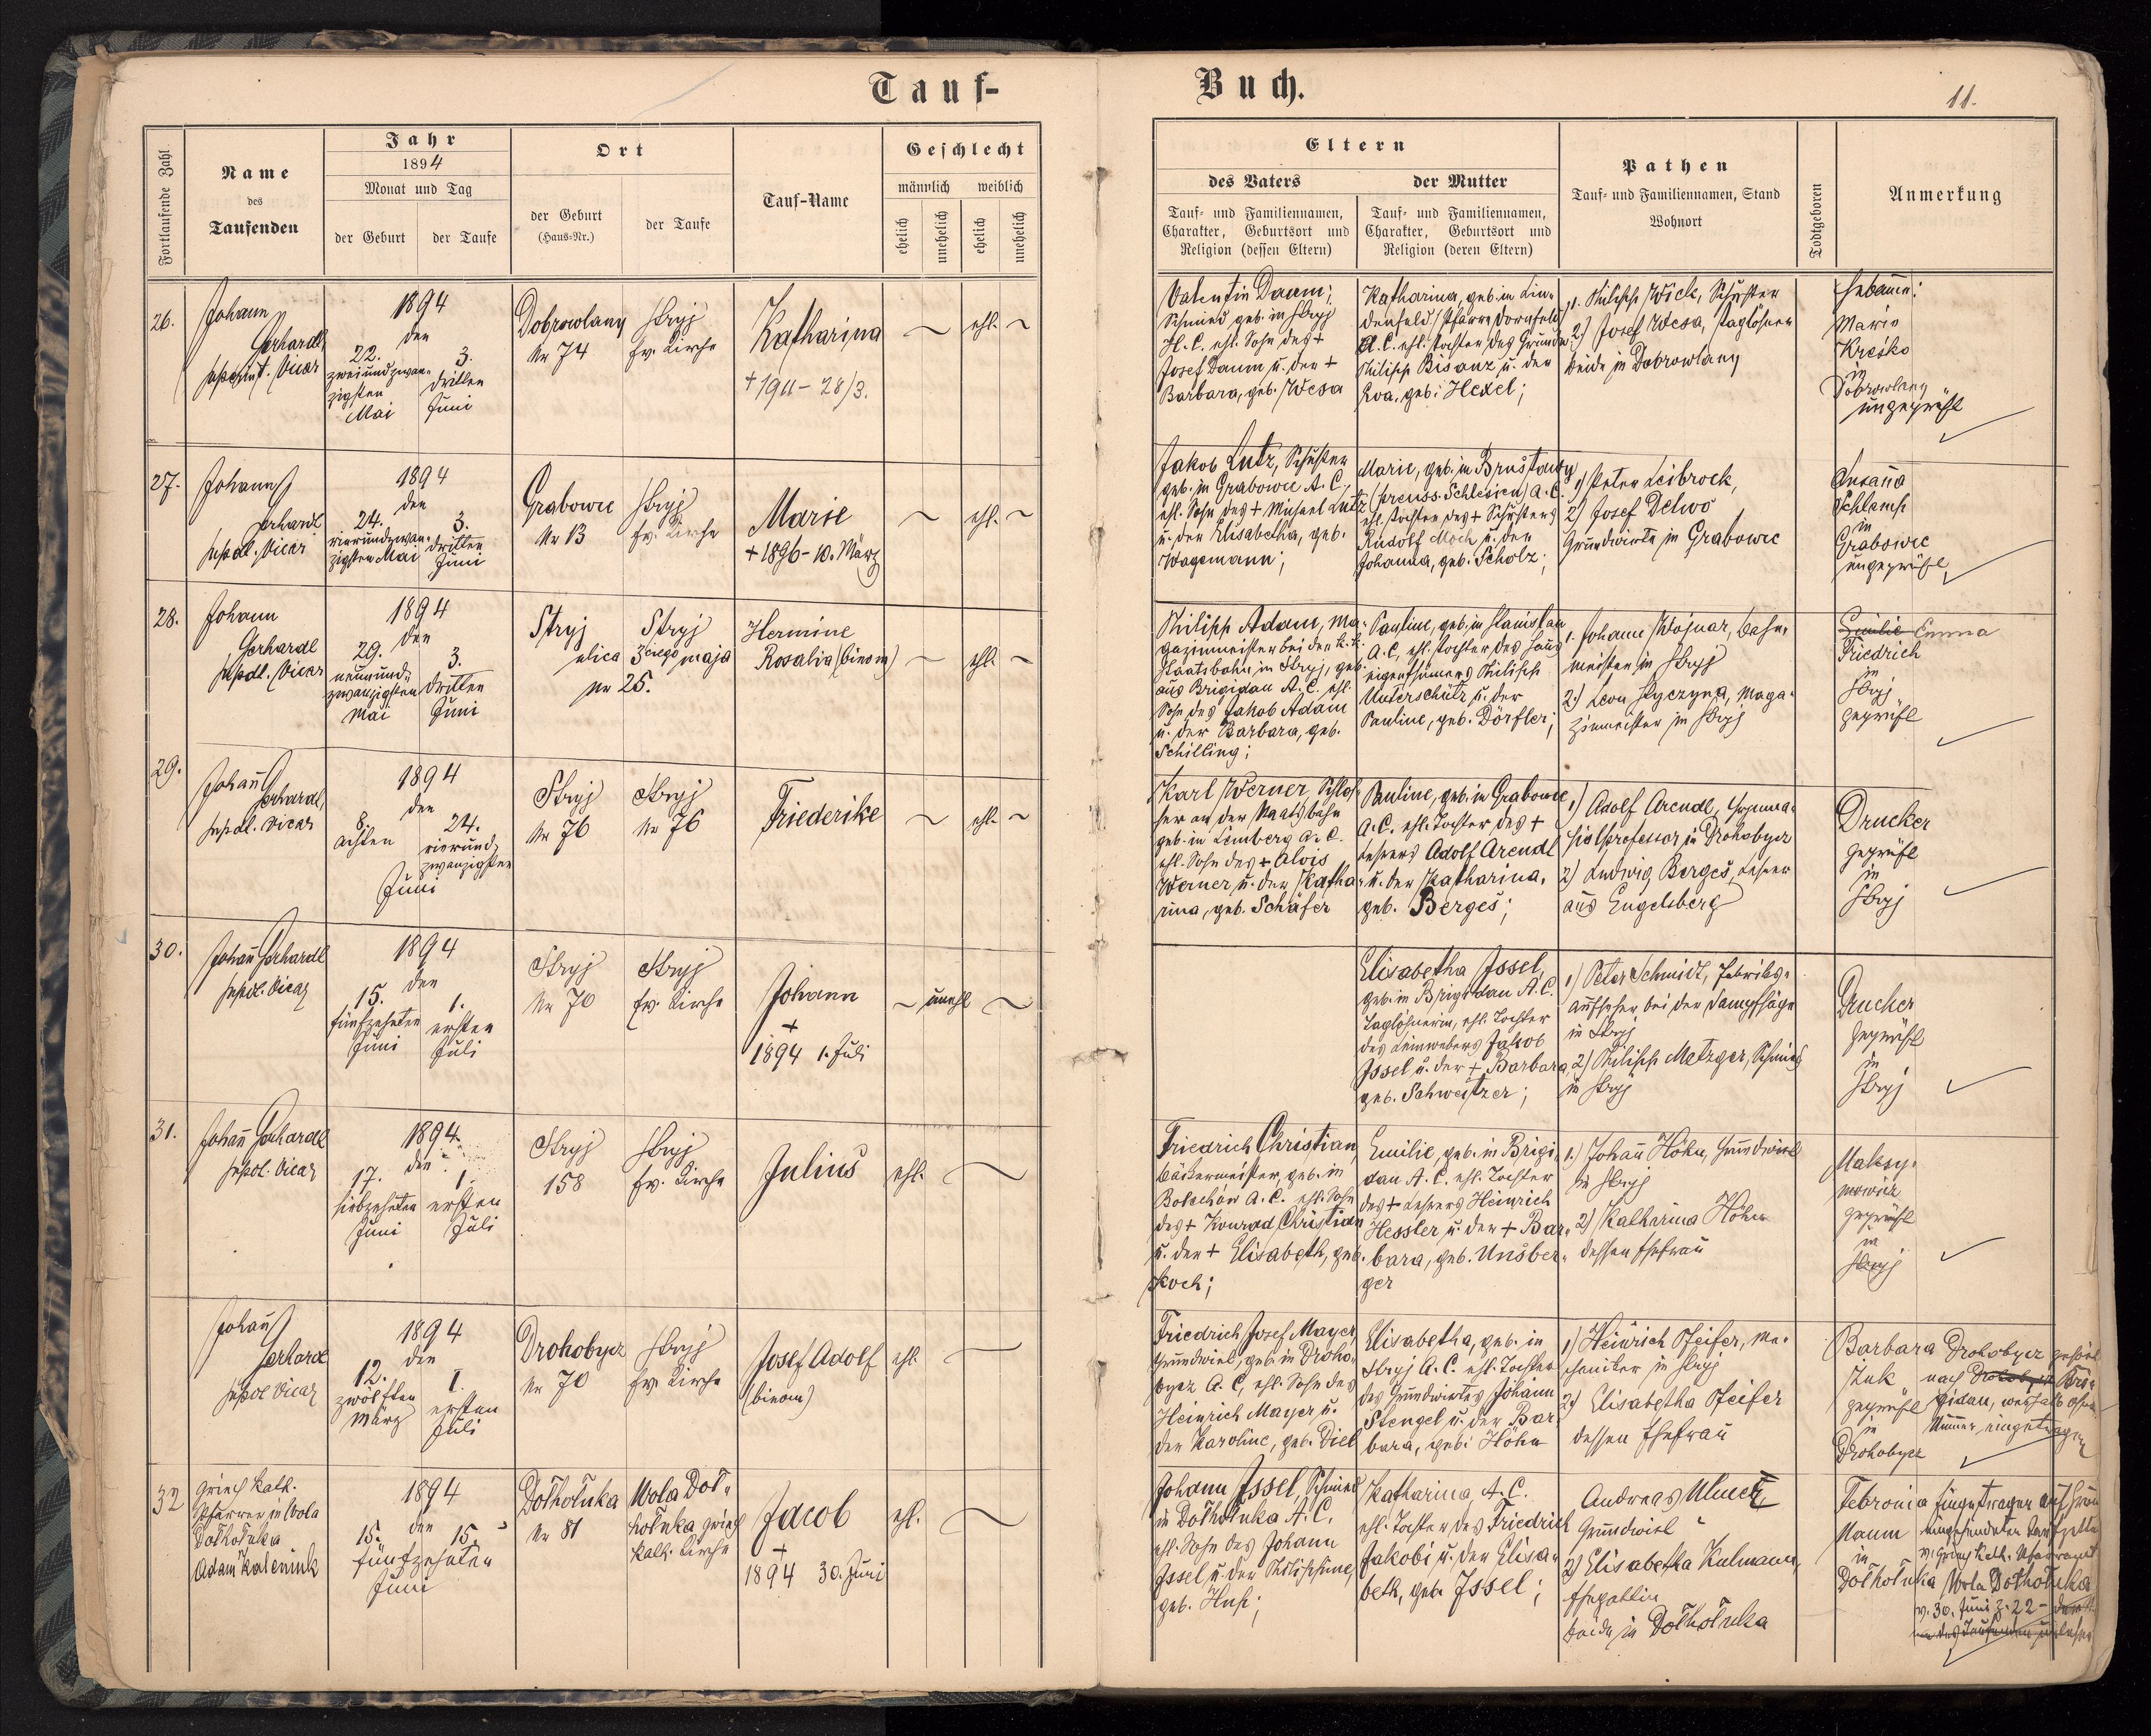 Tauf-
Buch.
11.
Fortlaufende Zahl
Name
des
Taufenden
Jahr
1894
Monat und Tag
der Geburt
der Taufe
Ort
der Geburt
(Haus-Nr.)
der Taufe
Tauf-Name
Geschlecht
männlich
weiblich
ehelich
unehelich
ehelich
unehelich
Eltern
des Vaters
Tauf- und Familiennamen,
Charakter, Geburtsort und
Religion (dessen Eltern)
der Mutter
Tauf- und Familiennamen,
Charakter, Geburtsort und
Religion (deren Eltern)
Pathen
Tauf- und Familiennamen, Stand
Wohnort
Todtgeboren
Anmerkung
26.
Johann
Gerhardt,
Vicar
1894
den
22.
zweiundzwan-
zigsten
Mai
3.
dritten
Juni
Dobrowlany
Nr 74
Stryj
ev. Kirche
Katharina
+ 1911 - 28/3.
ehl.
Valentin Daum;
Schmied geb. in Stryj
H. C. ehl. Sohn des +
Josef Daum u. der +
Barbara, geb. Wesa
Katharina, geb. in Lin-
denfeld (Pfarre Dornfeld)
ehl. Tochter des
Philipp Bisanz u. der
Eva, geb. Hexel;
1. Philipp Wick, Schuster
2.) Josef Wesa, Taglöhner
beide in Dobrowlany
Hebamme:
Marie
Kreśko
in
Dobrowlany
ungeprüft
27.
Johann
Gerhardt
Vicar
1894
den
24.
vierundzwan-
zigsten Mai
3.
dritten
Juni
Grabowce
Nr 13
Stryj
ev. Kirche
Marie
+ 1896 - 10. März
ehl.
Jakob Lutz, Schuster
geb. in Grabowce A. C.,
ehl. Sohn des + Michael Lutz
u. der Elisabetha, geb.
Wagemann;
Marie, geb. in
(preuss. Schlesien) A. C.
ehl. Tochter des + Schusters
Rudolf Moch u. der
Johanna, geb. Scholz;
1) Peter Leibrock,
2) Josef Delwo
Grundwirte in Grabowce
Susanna
Schlamp
in
Grabowce
ungeprüft
28.
Johann
Gerhardt
Vicar
1894
den
29.
neunund-
zwanzigsten
Mai
3.
dritten
Juni
Stryj
Stryj
ulica 3ciego maja
Nr 25.
Hermine
Rosalia (binom)
ehl.
Philipp Adam, Ma-
gazinmeister bei der k. k.
Staatsbahn in Stryj, geb.
aus Brigidau A. C. ehl.
Sohn des Jakob Adam
u. der Barbara, geb.
Schilling;
Pauline, geb. in Stanislau
A. C., ehl. Tochter des Haus-
eigenthümers Philipp
Unterschütz u. der
Pauline, geb. Dörfler;
1. Johann Wojnar, Bahn-
meister in Stryj
2.) Leon Styczyna, Maga-
zinmeister in Stryj
Emilie Emma
Friedrich
in
Stryj
geprüft
29.
Johann
Gerhardt,
Vicar
1894
den
8.
achten
24.
vierund-
zwanzigsten
Juni
Stryj
Nr 76
Stryj
Nr 76
Friederike
ehl.
Karl Werner, Schlos-
ser an der Staatsbahn
geb. in Lemberg A. C.
ehl. Sohn des + Alois
Werner u. der Katha-
rina, geb. Schäfer
Pauline, geb. in Grabowce
A. C. ehl. Tochter des +
Lehrers Adolf Arendt
u. der Katharina,
geb. Berges;
1) Adolf Arendt, Gymna-
sialprofessor in Drohobycz
2) Ludwig Berges, Lehrer
aus Engelsberg
Drucker
geprüft
in
Stryj
30.
Johann Gerhardt
Vicar
1894
den
15.
fünfzehnten
Juni
1.
ersten
Juli
Stryj
Nr 70
Stryj
ev. Kirche
Johann
+
1894 1. Juli
unehl
Elisabetha Issel,
geb. in Brigidau A. C.
Taglöhnerin, ehl. Tochter
des Leinwebers Jakob
Issel u. der + Barbara,
geb. Schweitzer;
1) Peter Schmidt, Fabriks-
aufseher bei der Dampfsäge
in Stryj
2) Philipp Metzger, Schmied
in Stryj
Drucker
geprüft
in
Stryj
31.
Johann Gerhardt
Vicar
1894
den
17.
siebzehnten
Juni
1.
ersten
Juli
Stryj
158
Stryj
ev. Kirche
Julius
ehl.
Friedrich Christian,
Bäckermeister, geb. in
Bolechów A. C. ehl. Sohn
des + Konrad Christian
u. der + Elisabeth, geb.
Koch;
Emilie, geb. in Brigi-
dau A. C. ehl. Tochter
des + Lehrers Heinrich
Hessler u. der + Bar-
bara, geb. Unsber-
ger
1.) Johann Höhn, Grundwirt
in Stryj
2) Katharina Höhn
dessen Ehefrau
Maksy-
mowicz
geprüft
in
Stryj
Johann
Gerhardt
Vicar
1894
den
12.
zwölften
März
1.
ersten
Juli
Drohobycz
Nr 70
Stryj
ev. Kirche
Josef Adolf
(binom)
ehl.
Friedrich Josef Mayer,
Grundwirt, geb. in Droho-
bycz A. C., ehl. Sohn des
Heinrich Mayer u.
der Karoline, geb. Diel
Elisabetha, geb. in
Stryj A. C. ehl. Tochter
des Grundwirtes Johann
Stengel u. der Bar-
bara, geb. Höhn
1) Heinrich Pfeifer, Me-
chaniker in Stryj
2) Elisabetha Pfeifer
dessen Ehefrau
Barbara
geprüft
in
Drohobycz
Drohobycz gehört
nach Drohobycz Bri-
gidau, weshalb ohne
Nummer eingetragen
32
Griech. kath.
Pfarrer in Wola
Dołhołuka
Adam
1894
den
15.
15.
fünfzehnten
Juni
Dołhołuka
Nr 81
Wola Doł-
hołuka griech.
kath. Kirche
Jacob
+
1894 30. Juni
ehl.
Johann Issel, Schmied
in Dołhołuka A. C.
ehl. Sohn des Johann
Issel u. der Philippine,
geb. Hup;
Katharina, A. C.
ehl. Tochter des Friedrich
Jakobi u. der Elisa-
beth, geb. Issel;
Andreas
Grundwirt
2) Elisabetha Kulmann,
Ehegattin
beide in Dołhołuka
Febronia
Naum
in
Dołhołuka
Eingetragen auf Grund
eingesendeten
v. griech. kath. Pfarramt
Wola Dołhołuka
v. 30. Juni Z. 22 -